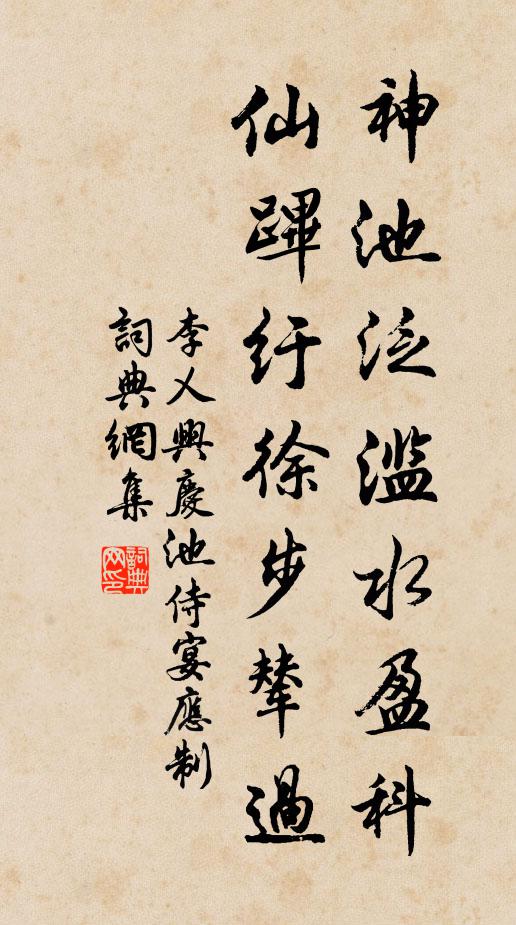 神池泛滥水盈科
仙蹕纡徐步輦過
李乂興慶池侍宴應制
詞典網集
詞典网印